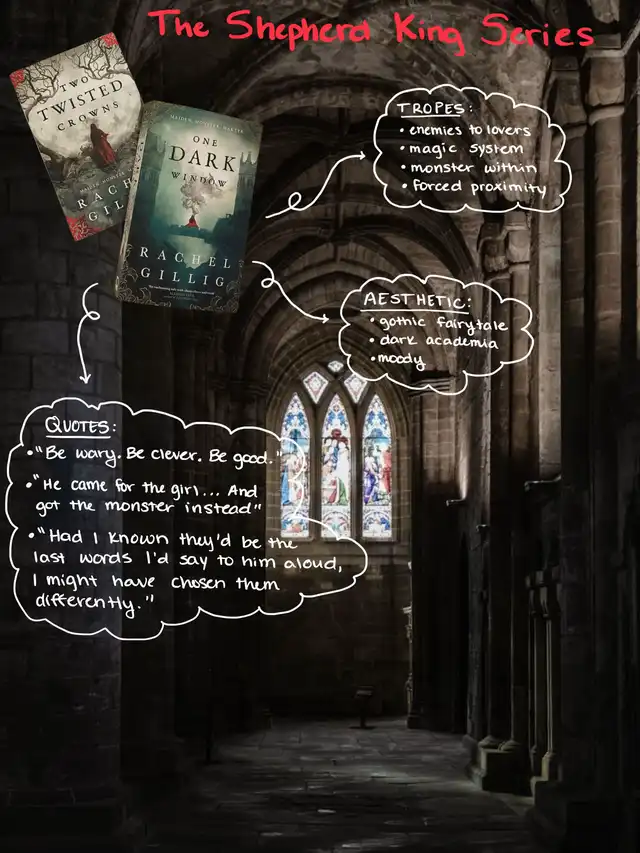 The Shepherd King Series
TWO
TWISTED
CROWNS
RACH
GIL
MAIDEN. MONSTER. MARTYR.
ONE
DARK
WINDOW
RACHEL
GILLIG
TROPES:
• enemies to lovers
• magic system
• monster within
• forced proximity
AESTHETIC:
• gothic fairytale
• dark academia
• moody
QUOTES:
• "Be wary. Be clever. Be good."
• "He came for the girl... And
got the monster instead"
• "Had I known they'd be the
last words I'd say to him aloud,
I might have chosen them
differently."